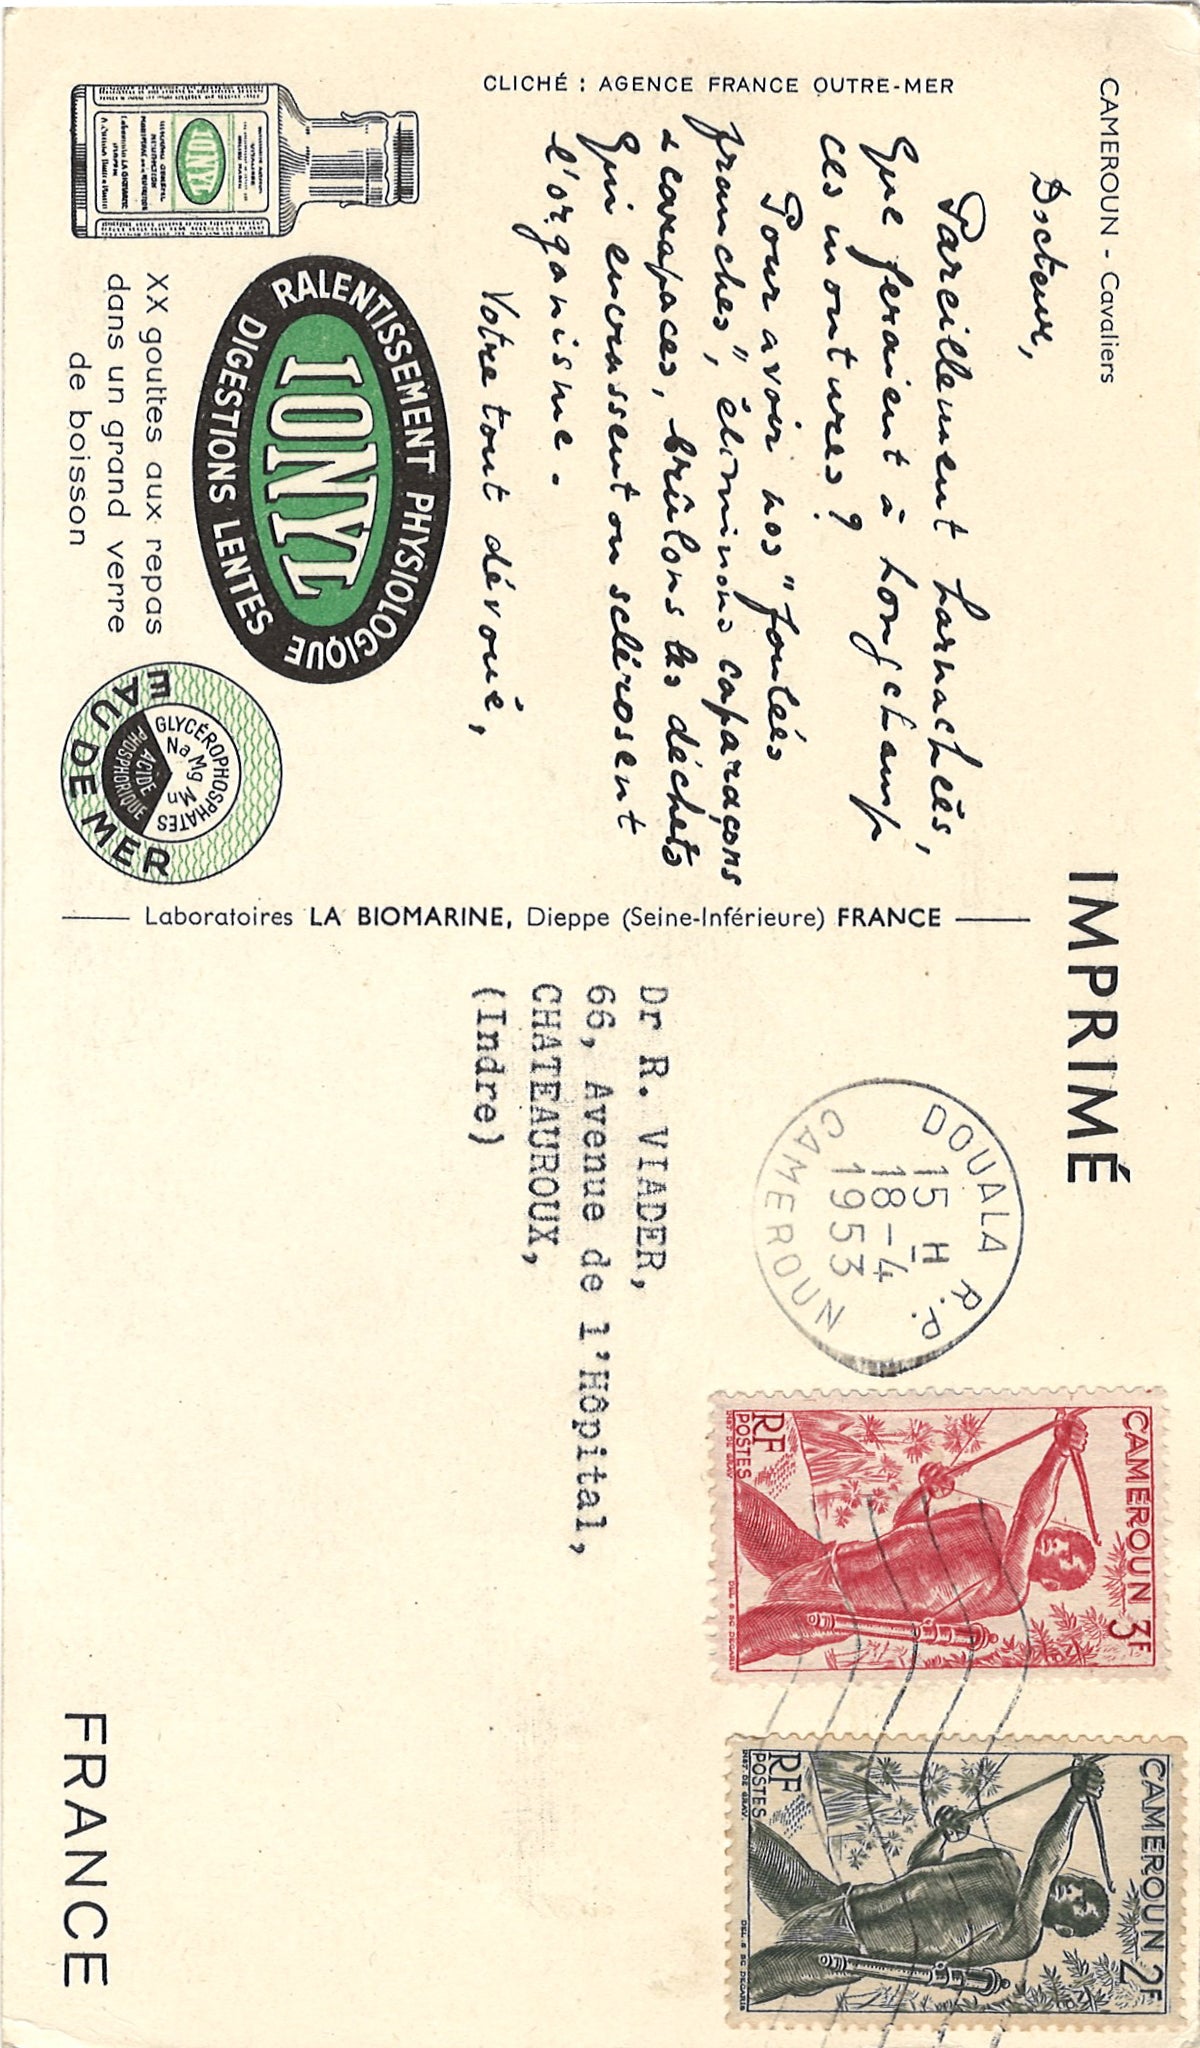 CAMEROUN - Cavaliers
Docteur,
Pareillement harnachés,
Que feraient à Longchamp
ces montures ?
Pour avoir nos "foulées
franches", éliminons caparaçons
& carapaces, brûlons les déchets
Qui encrassent ou sclérosent
l'organisme.
Votre tout dévoué,
CLICHÉ : AGENCE FRANCE OUTRE-MER
RALENTISSEMENT PHYSIOLOGIQUE
IONYL
DIGESTIONS LENTES
XX gouttes aux repas
dans un grand verre
de boisson
IONYL
EAU DE MER
GLYCÉROPHOSPHATES
Na Mg Mn
ACIDE
PHOSPHORIQUE
Laboratoires LA BIOMARINE, Dieppe (Seine-Inférieure) FRANCE
IMPRIMÉ
DOUALA R.P.
15 H
18-4
1953
CAMEROUN
CAMEROUN 3F
RF
POSTES
INST. DE GRAV
DEL & SC DECARIS
CAMEROUN 2F
RF
POSTES
INST. DE GRAV
DEL & SC DECARIS
Dr R. VIADER,
66, Avenue de l'Hôpital,
CHATEAUROUX,
(Indre)
FRANCE